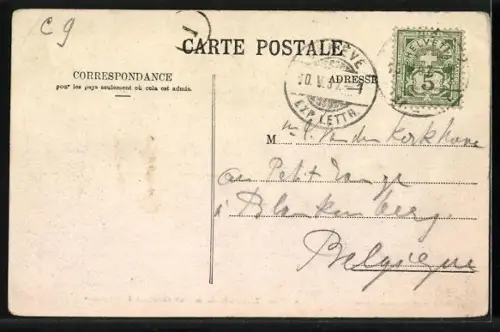 C 9
CARTE POSTALE
CORRESPONDANCE
pour les pays seulement où cela est admis.
ADRESSE
HELVETIA
5
EXP. LETTR.
M
au Petit
à Blankenberge
Belgique